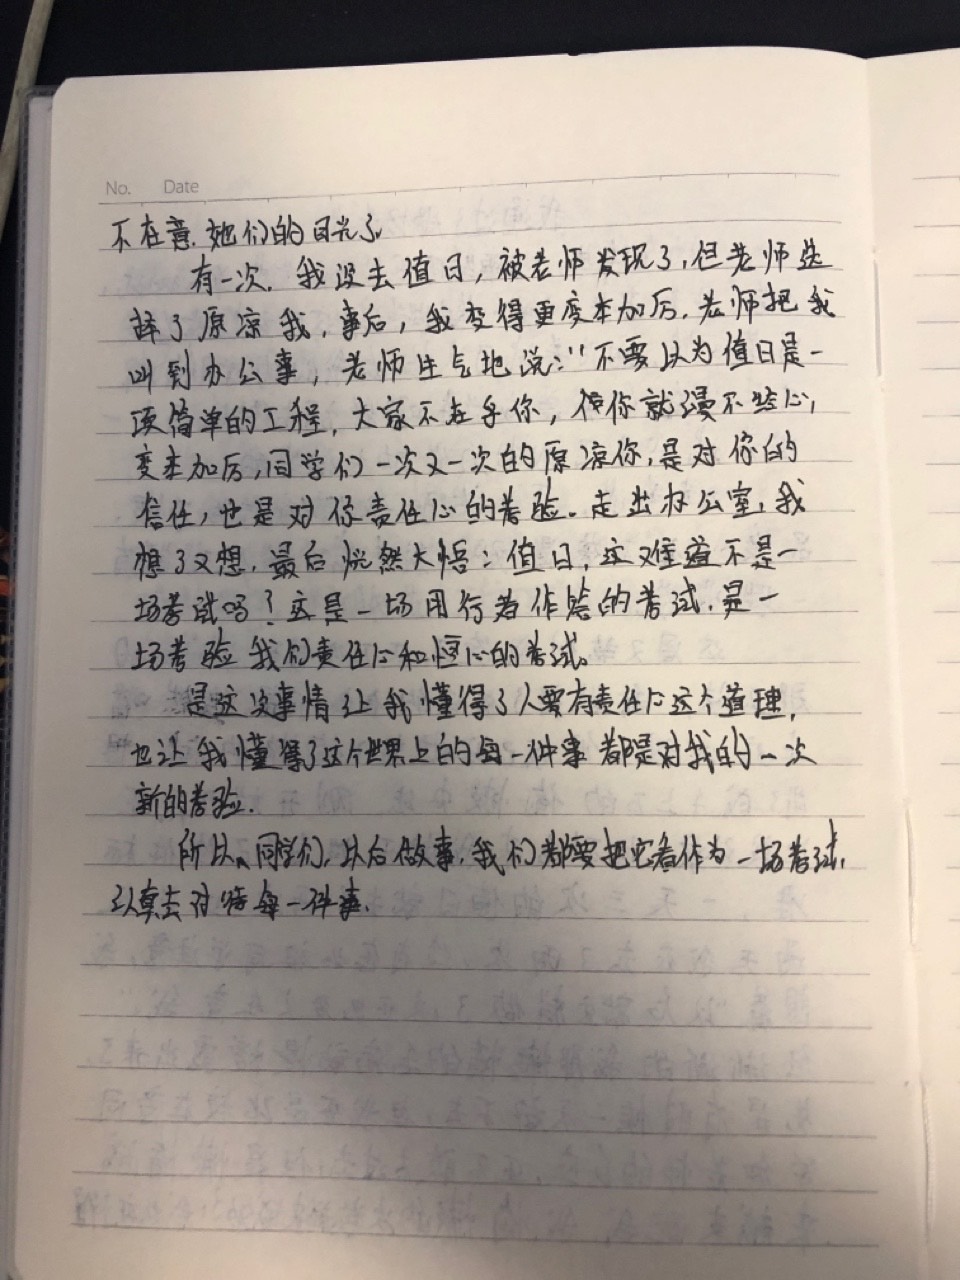 No. Date
不在意她们的目光了。
有一次，我没去值日，被老师发现了，但老师选
择了原凉我，事后，我变得更变本加厉，老师把我
叫到办公事，老师生气地说：“不要以为值日是一
项简单的工程，大家不在乎你，使你就漫不经心，
变本加厉，同学们一次又一次的原凉你，是对你的
信任，也是对你责任心的考验。走出办公室，我
想了又想，最后恍然大悟：值日，这难道不是一
场考试吗？这是一场用行者作答的考试，是一
场考验我们责任心和恒心的考试。
是这次事情让我懂得了人要有责任心这个道理，
也让我懂得了这个世界上的每一件事都是对我的一次
新的考验。
所以，同学们，以后做事，我们都要把它看作为一场考试，
认真去对待每一件事。